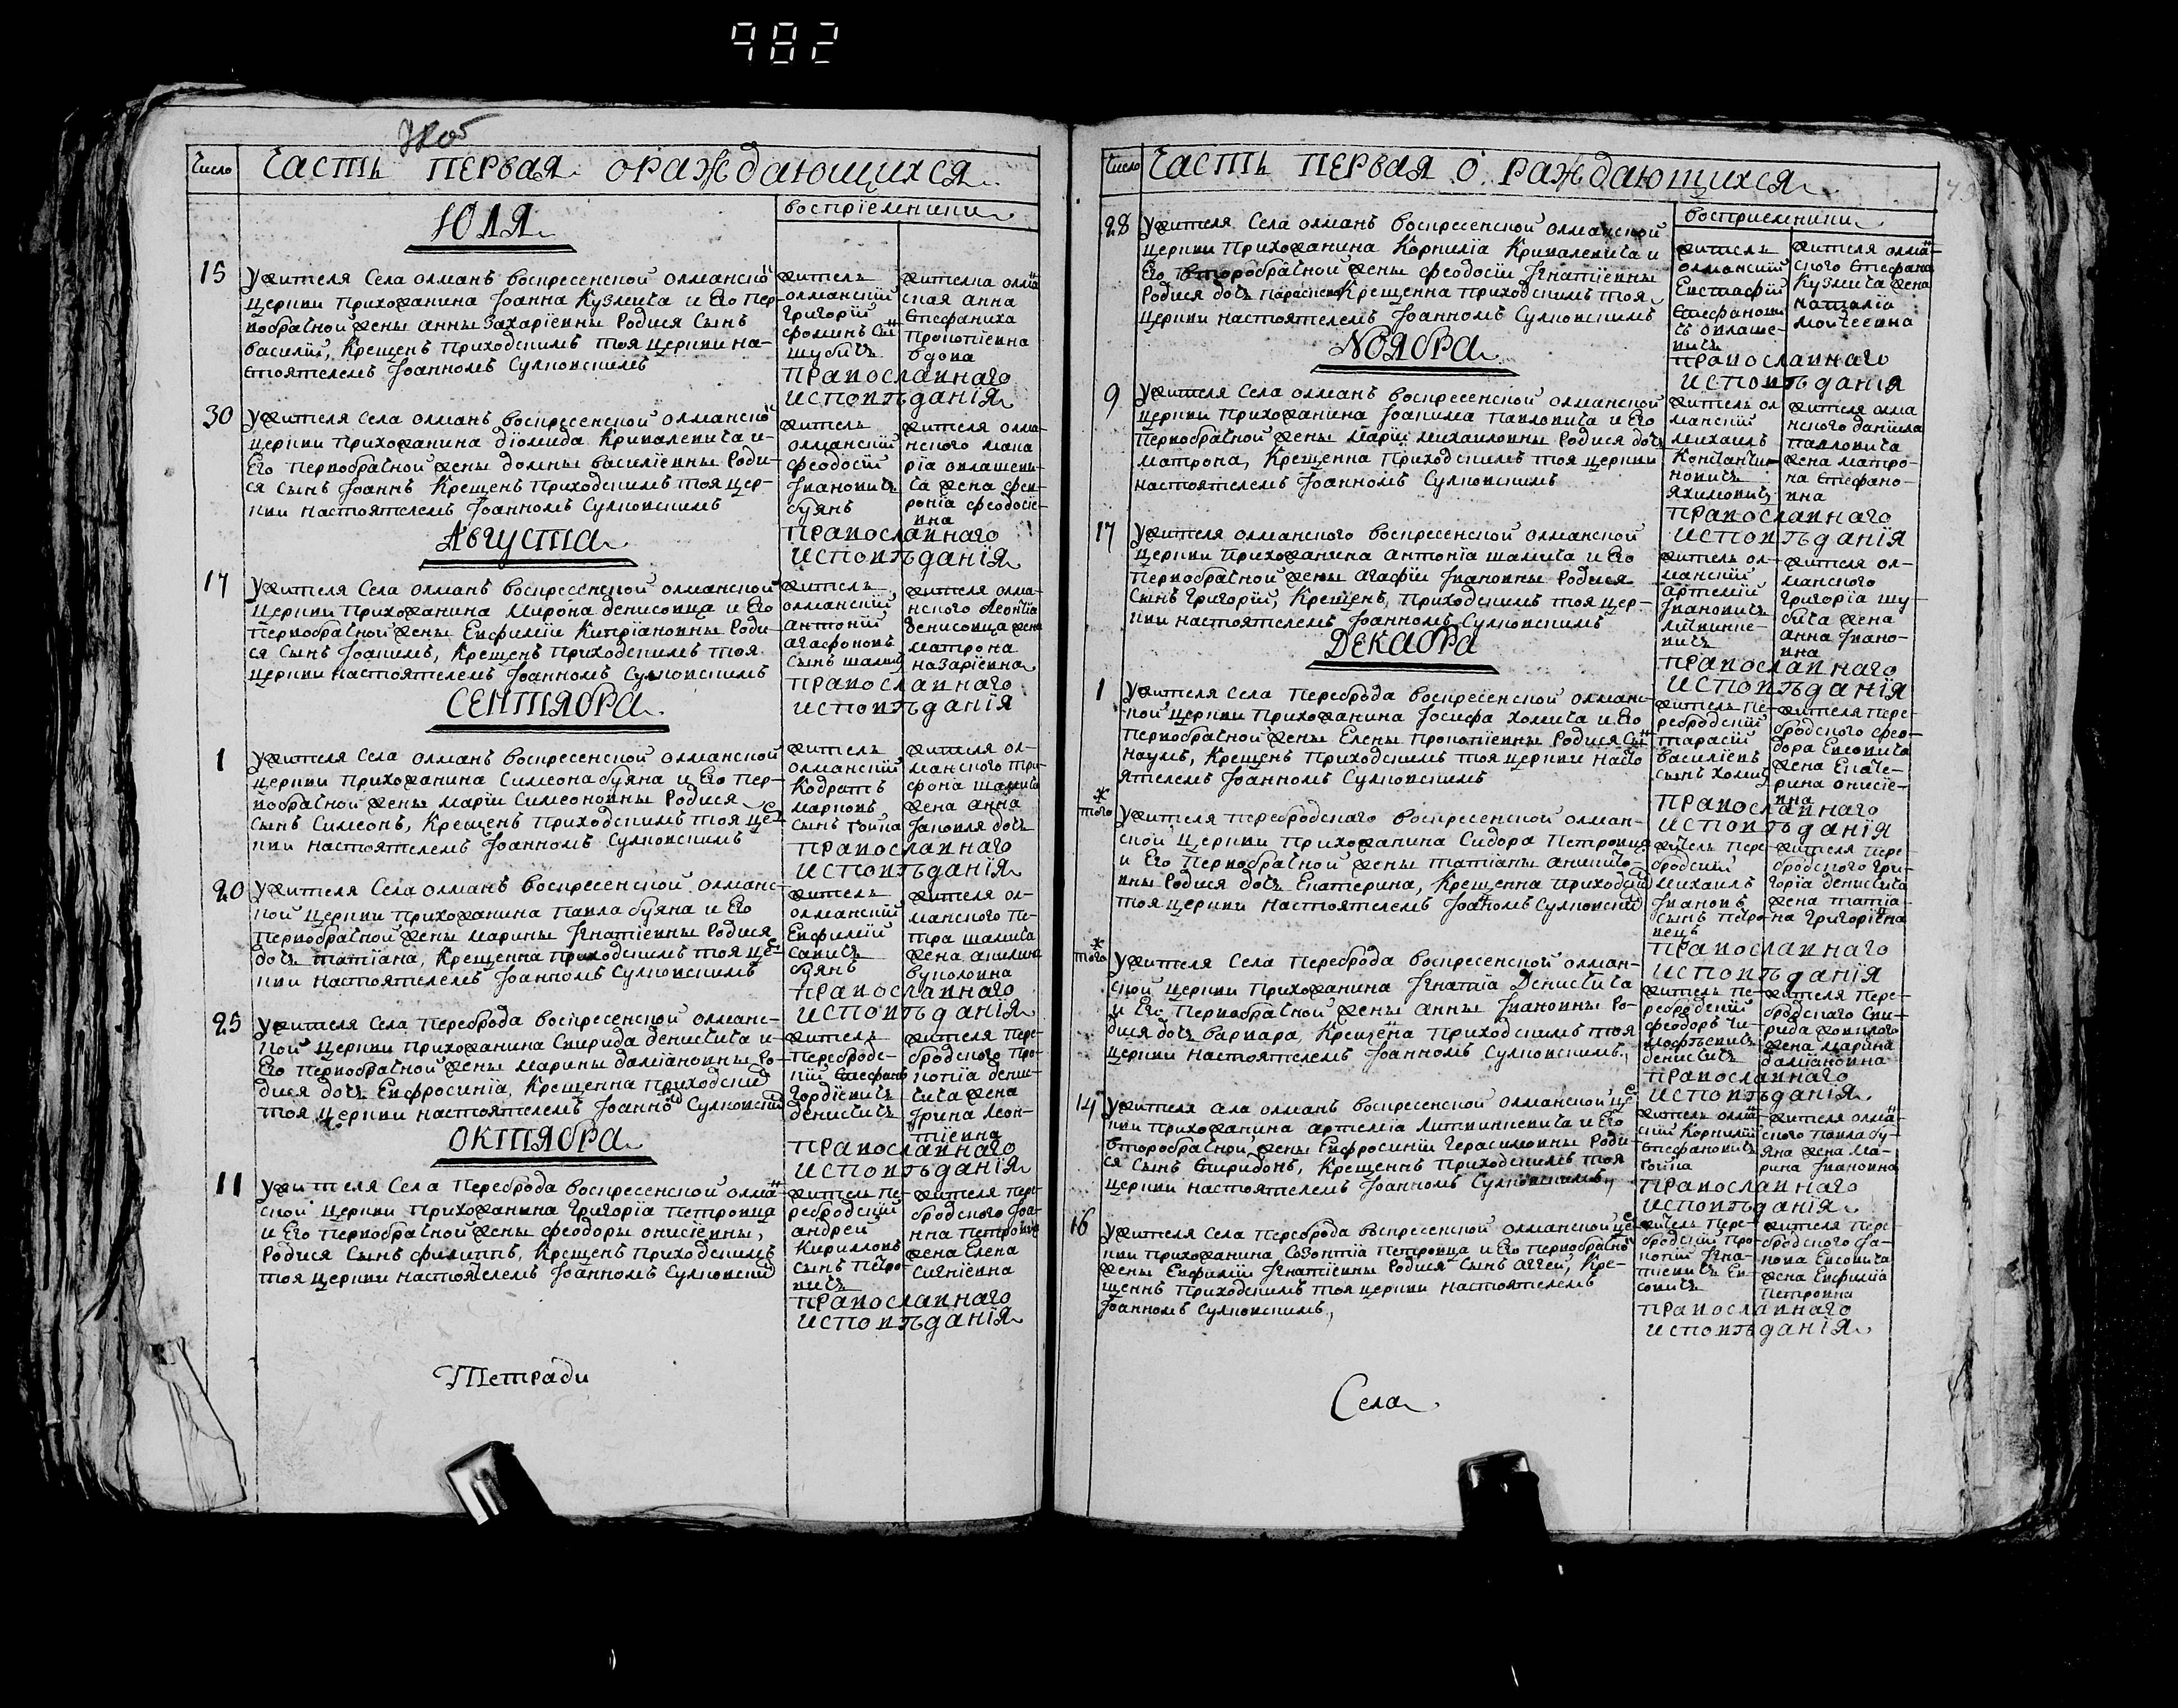 982
Число
Часть первая о раждающихся
воспріемники
Юля
15
У жителя Села олманъ воскресенской олманскo
церкви прихожанина Іоанна Кузмича и Его пер-
вобрачной жены анны Захаріевны Родися Сынъ
василій, Крещенъ приходскимъ тоя церкви на-
стоятелемъ Іоанномъ Сулковскимъ
житель
олманскій
григорій
фоминъ Сы
шубичъ
жителка олма
ская анна
Стефаниха
Прокопіевна
вдова
православнаго
исповѣданія
30
У жителя Села олманъ воскресенской олманско
церкви прихожанина діомида Кривалевича и
Его первобрачной жены домны василіевны Роди-
ся Сынъ Іоаннъ Крещенъ приходскимъ тоя цер-
кви настоятелемъ Іоанномъ Сулковскимъ
житель
олманскій
феодосій
Івановичъ
буянъ
жителя олма-
нского мака
рія
ча жена фев-
ронія феодосіе-
вна
православнаго
исповѣданія
Августа
17
У жителя Села олманъ воскресенской олманской
церкви прихожанина Мирона денисовца и Его
первобрачной жены Евфиміи Кипріановны Роди-
ся Сынъ Іоакимъ, Крещенъ приходскимъ тоя
церкви настоятелемъ Іоанномъ Сулковскимъ
житель
олманскій
антоній
агафоновъ
Сынъ
жителя олма-
нского Леонтія
денисовца жена
матрона
назаріевна
православнаго
исповѣданія
Сентября
1
У жителя Села олманъ воскресенской олманской
церкви прихожанина Симеона буяна и Его пер-
вобрачной жены маріи Симеоновны Родися
Сынъ Симеонъ, Крещенъ приходскимъ тоя це
кви настоятелемъ Іоанномъ Сулковскимъ
житель
олманскій
Кодратъ
марковъ
Сынъ
жителя ол-
манского три-
фона шамича
жена анна
Іаковля дочь
православнаго
исповѣданія
20
У жителя Села олманъ воскресенской олманс-
кой церкви прихожанина павла буяна и Его
первобрачной жены марины Ігнатіевны Родися
дочь татіана, Крещенна приходскимъ тоя це
кви настоятелемъ Іоанномъ Сулковскимъ
житель
олманскій
Евфимій
Савичъ
буянъ
жителя ол-
манского пе-
тра шамича
жена акилина
вуколовна
православнаго
исповѣданія
25
У жителя Села переброда воскресенской олманс-
кой церкви прихожанина Спирида денисчича и
Его первобрачной жены марины даміановны Ро-
дися дочь Евфросинія, Крещенна приходски
тоя церкви настоятелемъ Іоанно Сулковски
житель
перебродс-
кій Стефанъ
гордіевичъ
денисчичъ
жителя пере-
бродского про-
копія денис-
чича жена
Ірина Леон-
тіевна
православнаго
исповѣданія
Октября
11
У жителя Села переброда воскресенской олма
ской церкви прихожанина григорія петровца
и Его первобрачной жены феодоры онисіевны,
Родися Сынъ филиппъ, Крещенъ приходскимъ
тоя церкви настоятелемъ Іоанномъ Сулковски
житель пе-
ребродскій
андрей
Кирилловъ
Сынъ петро-
вичъ
жителя пере-
бродского Іоа-
нна петровца
жена Елена
православнаго
исповѣданія
Тетради
Число
Часть первая о раждающихся
воспріемники
28
У жителя Села олманъ воскресенской олманской
церкви прихожанина Корнилія Кривалевича и
Его второбрачной жены феодосіи Ігнатіевны
Родися дочь параскева Крещенна приходскимъ тоя
церкви настоятелемъ Іоанномъ Сулковскимъ
житель
олманскій
Евстафій
жителя олма-
ского Стефана
Кузмича жена
наталія
моисеевна
православнаго
исповѣданія
Ноября
9
У жителя Села олманъ воскресенской олманской
церкви прихожанина Іоакима павловича и Его
первобрачной жены маріи михаиловны Родися дочь
матрона, Крещенна приходскимъ тоя церкви
настоятелемъ Іоанномъ Сулковскимъ
житель ол
манскій
михаилъ
Константи
новичъ
яхимовичъ
жителя олма
нского даніила
павловича
жена матро-
на Стефано-
вна
православнаго
исповѣданія
17
У жителя олманского воскресенской олманской
церкви прихожанина антонія шамича и Его
первобрачной жены агафіи Івановны Родися
Сынъ григорій, Крещенъ, приходскимъ тоя цер-
кви настоятелемъ Іоанномъ Сулковскимъ
житель ол-
манскій
артемій
Івановичъ
литвинке-
вичъ
жителя ол-
манского
григорія шу-
бича жена
анна Івано-
вна
православнаго
исповѣданія
Декабря
1
У жителя Села переброда воскресенской олманс-
кой церкви прихожанина Іосифа хомича и Его
первобрачной жены Елены прокопіевны Родися Сы
наумъ, Крещенъ приходскимъ тоя церкви насто
ятелемъ Іоанномъ Сулковскимъ
житель пе-
ребродскій
тарасій
василіевъ
Сынъ хомичъ
жителя пере-
бродского фео-
дора Евсовича
жена Екате-
рина онисіе-
вна
православнаго
исповѣданія
*
того
У жителя перебродского воскресенской олман-
ской церкви прихожанина Сидора петровца
и Его первобрачной жены татіаны аникіе-
вны Родися дочь Екатерина, Крещенна приходски
тоя церкви настоятелемъ Іоаномъ Сулковски
житель пере-
бродскій
михаилъ
Івановъ
Сынъ петро
вецъ
жителя пере
бродского гри-
горія денисчича
жена татіа-
на григоріевна
православнаго
исповѣданія
*
того
У жителя Села переброда воскресенской олман-
ской церкви прихожанина Ігнатія денисчича
и Его первобрачной жены анны Івановны Ро-
дися дочь варвара, Крещена приходскимъ тоя
церкви настоятелемъ Іоанномъ Сулковскимъ
житель пе-
ребродскій
феодоръ ти-
мофѣевичъ
денисчичъ
жителя пере-
бродского Спи-
рида
жена марина
даміановна
православнаго
исповѣданія
14
У жителя села олманъ воскресенской олманской це
кви прихожанина артемія литвинкевича и Его
второбрачной жены Евфросиніи герасимовны Роди-
ся Сынъ Спиридонъ, Крещеннъ приходскимъ тоя
церкви настоятелемъ Іоанномъ Сулковскимъ
житель олма-
скій Корнилій
Стефановичъ
жителя олма-
ского павла бу-
яна жена ма-
рина Івановна
православнаго
исповѣданія
16
У жителя Села переброда воскресенской олманской це
кви прихожанина Созонтія петровца и Его первобрачно
жены Евфиміи Ігнатіевны Родися Сынъ аггей, Кре-
щеннъ приходскимъ тоя церкви настоятелемъ
Іоанномъ Сулковскимъ
житель пере-
бродскій про-
копій Ігна-
тіевичъ Ев-
совичъ
жителя пере-
бродского Іа-
кова Евсовича
жена Евфимія
петровна
православнаго
исповѣданія
Села